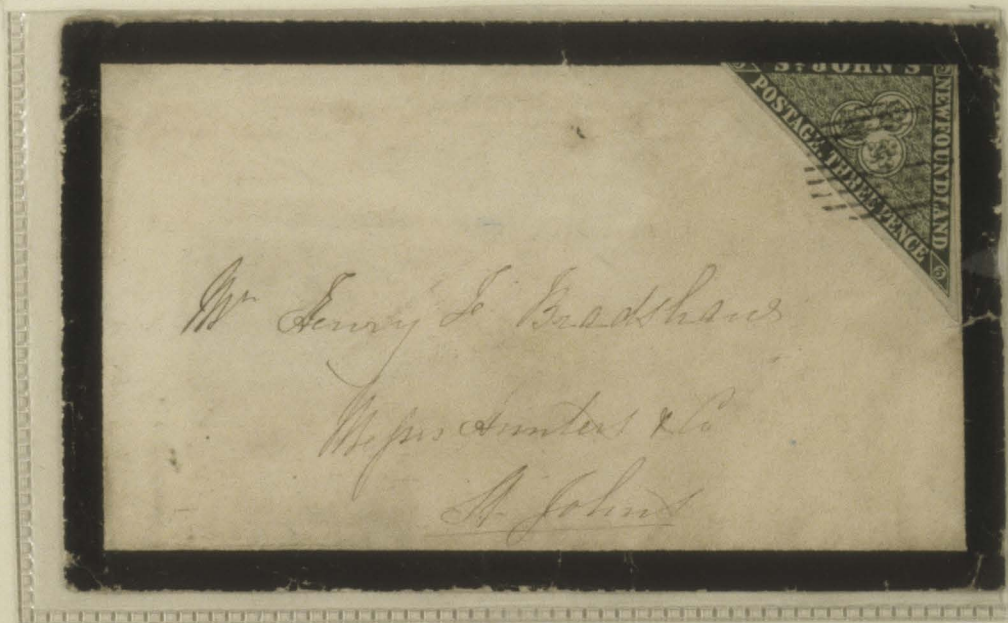 ST. JOHN'S
NEWFOUNDLAND
POSTAGE THREE PENCE
3
Mr Henry Le Bradshaw
Messrs Hunters & Co
St. Johns